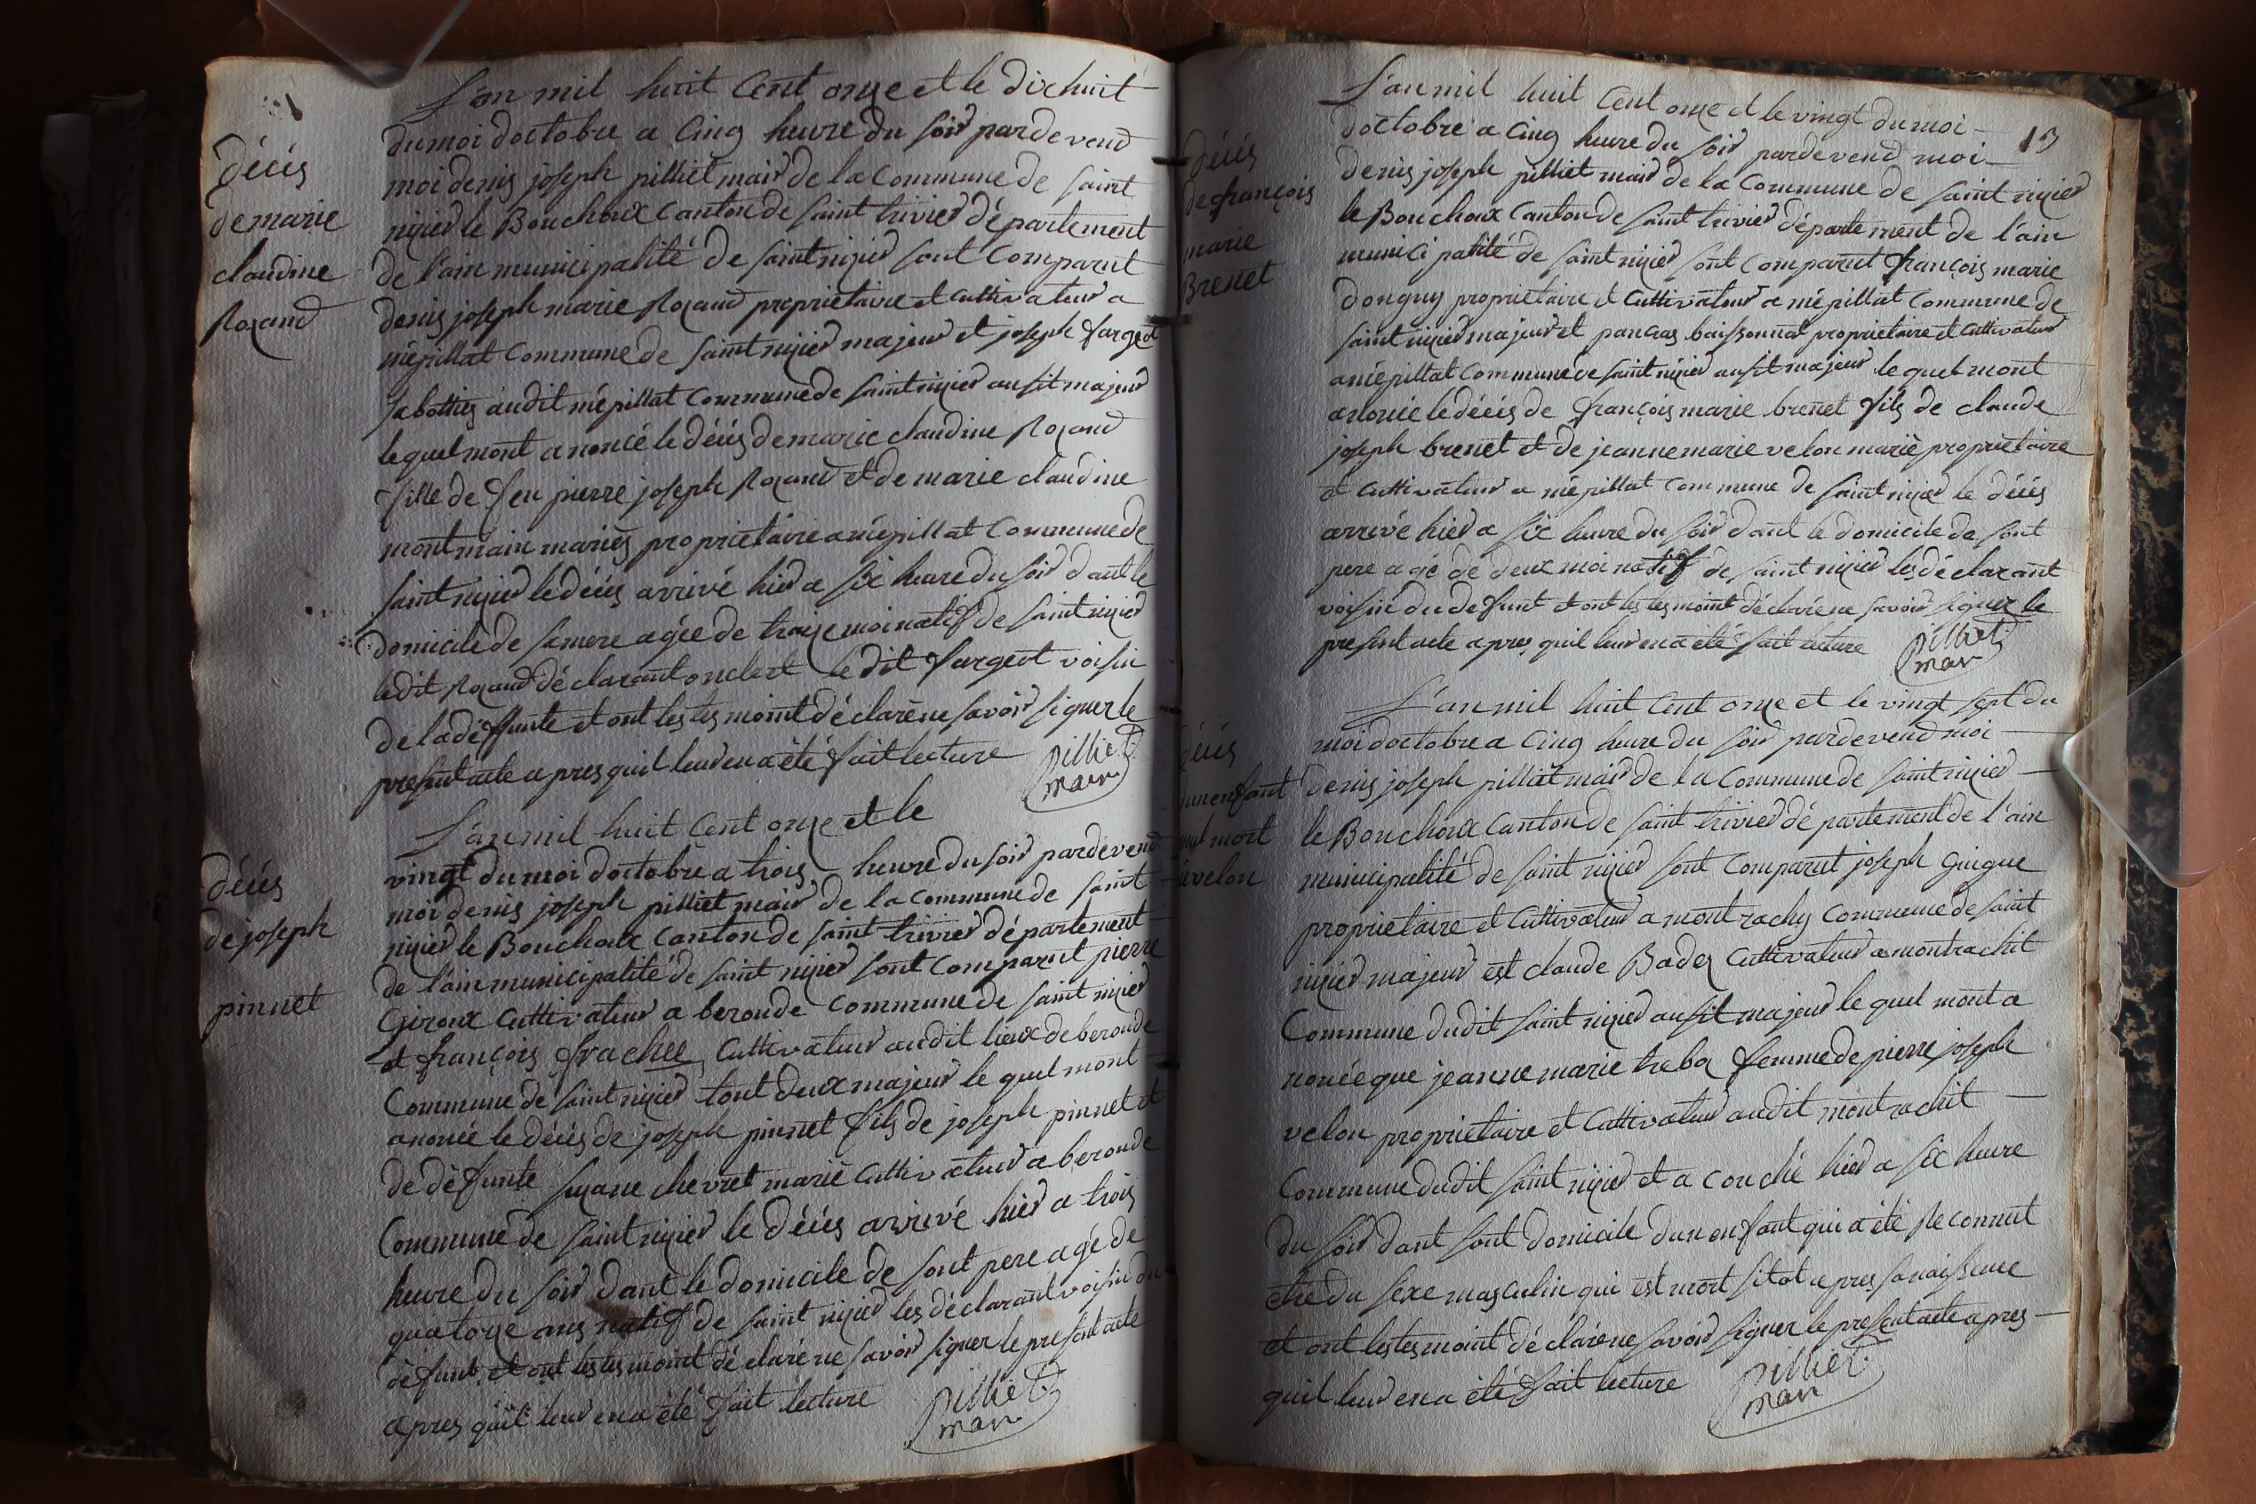 décés
de marie
claudine
Rozand
L'an mil huit Cent onze et le dix huit
du moi doctobre a Cinq heure du soir par de vend
moi denis joseph pilliet mair de la Commune de saint
nizier le Bouchoux Canton de saint trivier département
de l'ain municipalité de saint nizier sont Comparut
denis joseph marie Rozand proprietaire et Cultivateur a
mépillat Commune de saint nizier majeur et joseph fargeot
sabottier audit mépillat Commune de saint nizier ausit majeur
lequel mont anoncé le décés de marie claudine Rozand
fille de feu pierre joseph Rozand et de marie claudine
montmain mariés proprietaire a mépillat Commune de
saint nizier le décés arrivé hier a six heure du soir dant le
domicile de sa mere agée de traze moi natif de saint nizier
ledit Rozand déclarant onclest le dit fargeot voisin
de la déffunte et ont les tesmoint déclaré ne savoir signer le
present acte apres quil leur en a été fait lecture
pilliet
mair
décés
de joseph
pinnet
L'an mil huit Cent onze et le
vingt du moi doctobre a trois heure du soir par de vend
moi denis joseph pilliet mair de la Commune de saint
nizier le Bouchoux Canton de saint trivier département
de l'ain municipalité de saint nizier sont Comparut pierre
Giroux Cultivateur a beroude Commune de saint nizier
et françois frachee Cultivateur audit lieux de beroude
Commune de saint nizier tout deux majeur le quel mont
anoncé le décés de joseph pinnet fils de joseph pinnet et
de défunte suzane chevret marié Cultivateur a beroude
Commune de saint nizier le décés arrivé hier a trois
heure du soir dant le domicile de sont pere agé de
quatorze ans natif de saint nizier les déclarant voisin du
défunt et ont les tesmoint déclaré ne savoir signer le present acte
apres quil leur en a été fait lecture
pilliet
mair
13
décés
de françois
marie
Brenet
L'an mil huit Cent onze et le vingt du moi
doctobre a Cinq heure du soir par de vend moi
denis joseph pilliet mair de la Commune de saint nizier
le Bouchoux Canton de saint trivier département de l'ain
municipalité de saint nizier sont Comparut françois marie
donguy proprietaire et Cultivateur a mépillat Commune de
saint nizier majeur et pancras baissonnat proprietaire et Cultivateur
a mépillat Commune de saint nizier ausit majeur le quel mont
anoncé le décés de françois marie brenet fils de claude
joseph brenet et de jeanne marie velon marié proprietaire
et Cultivateur a mépillat Commune de saint nizier le décés
arrivé hier a six heure du soir dant le domicile de sont
pere agé de deux moi natif de saint nizier les déclarant
voisin du defunt et ont les tesmoint déclaré ne savoir signer le
present acte apres quil leur en a été fait lecture
pilliet
mair
décés
dun enfant
mort
velon
L'an mil huit Cent onze et le vingt sept du
moi doctobre a Cinq heure du soir par de vend moi
denis joseph pilliet mair de la Commune de saint nizier
le Bouchoux Canton de saint trivier département de l'ain
municipalité de saint nizier sont Comparut joseph Guigue
proprietaire et Cultivateur a mont rachy Commune de saint
nizier majeur est claude Badez Cultivateur a montrachit
Commune dudit saint nizier ausit majeur le quel mont a
noncée que jeanne marie treboz femme de pierre joseph
velon proprietaire et Cultivateur audit montrachit
Commune dudit saint nizier et a couché hier a six heure
du soir dant sont domicile dun enfant qui a été Reconnut
etre du sexe masculin qui est mort sitot apres sa naissence
et ont les tesmoint déclaré ne savoir signer le present acte apres
quil leur en a été fait lecture
pilliet
mair